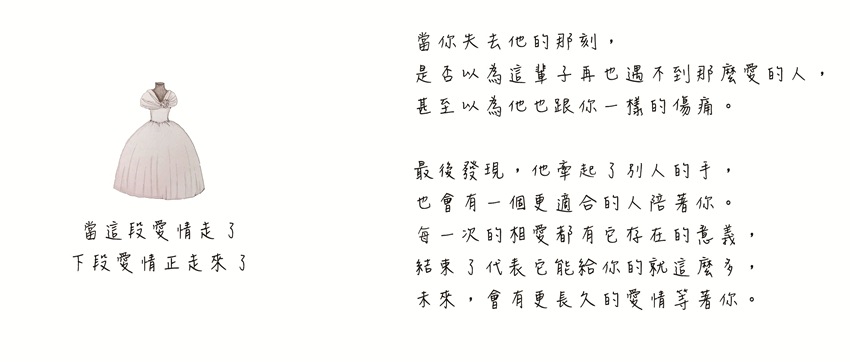 當這段愛情走了
下段愛情正走來了
當你失去他的那刻，
是否以為這輩子再也遇不到那麼愛的人，
甚至以為他也跟你一樣的傷痛。
最後發現，他牽起了別人的手，
也會有一個更適合的人陪著你。
每一次的相愛都有它存在的意義，
結束了代表它能給你的就這麼多，
未來，會有更長久的愛情等著你。